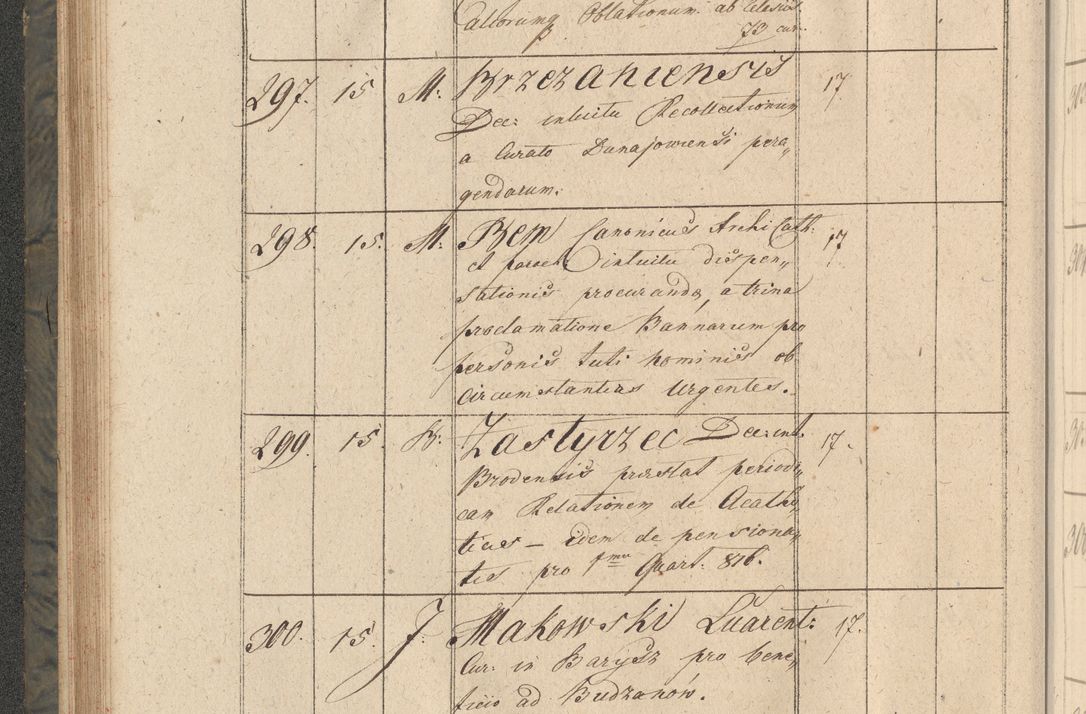 Oblationum ab
73 cur.
297. 15 M. Brzezaniensis 17.
Dec: intuitu Recollectionum
a Curato Dunajowiensi pera„
gendarum.
298. 15. M. Bem Canonicus Archi Cath. 17
et intuitu dispen„
sationis procuranda, a trina
proclamatione Bannarum pro
personis tuti hominis ob
Circumstantias Urgentes.
299. 15 B. Zastyrzec Dec: int. 17.
Brodensis praestat periodi„
cam Relationem de Acatho„
licis – idem de pensiona„
tis pro 1mu Quart. 816.
300. 15 J. Makowski Luarent: 17.
Cur: in Barysz pro bene„
ficio ad Budzanów.